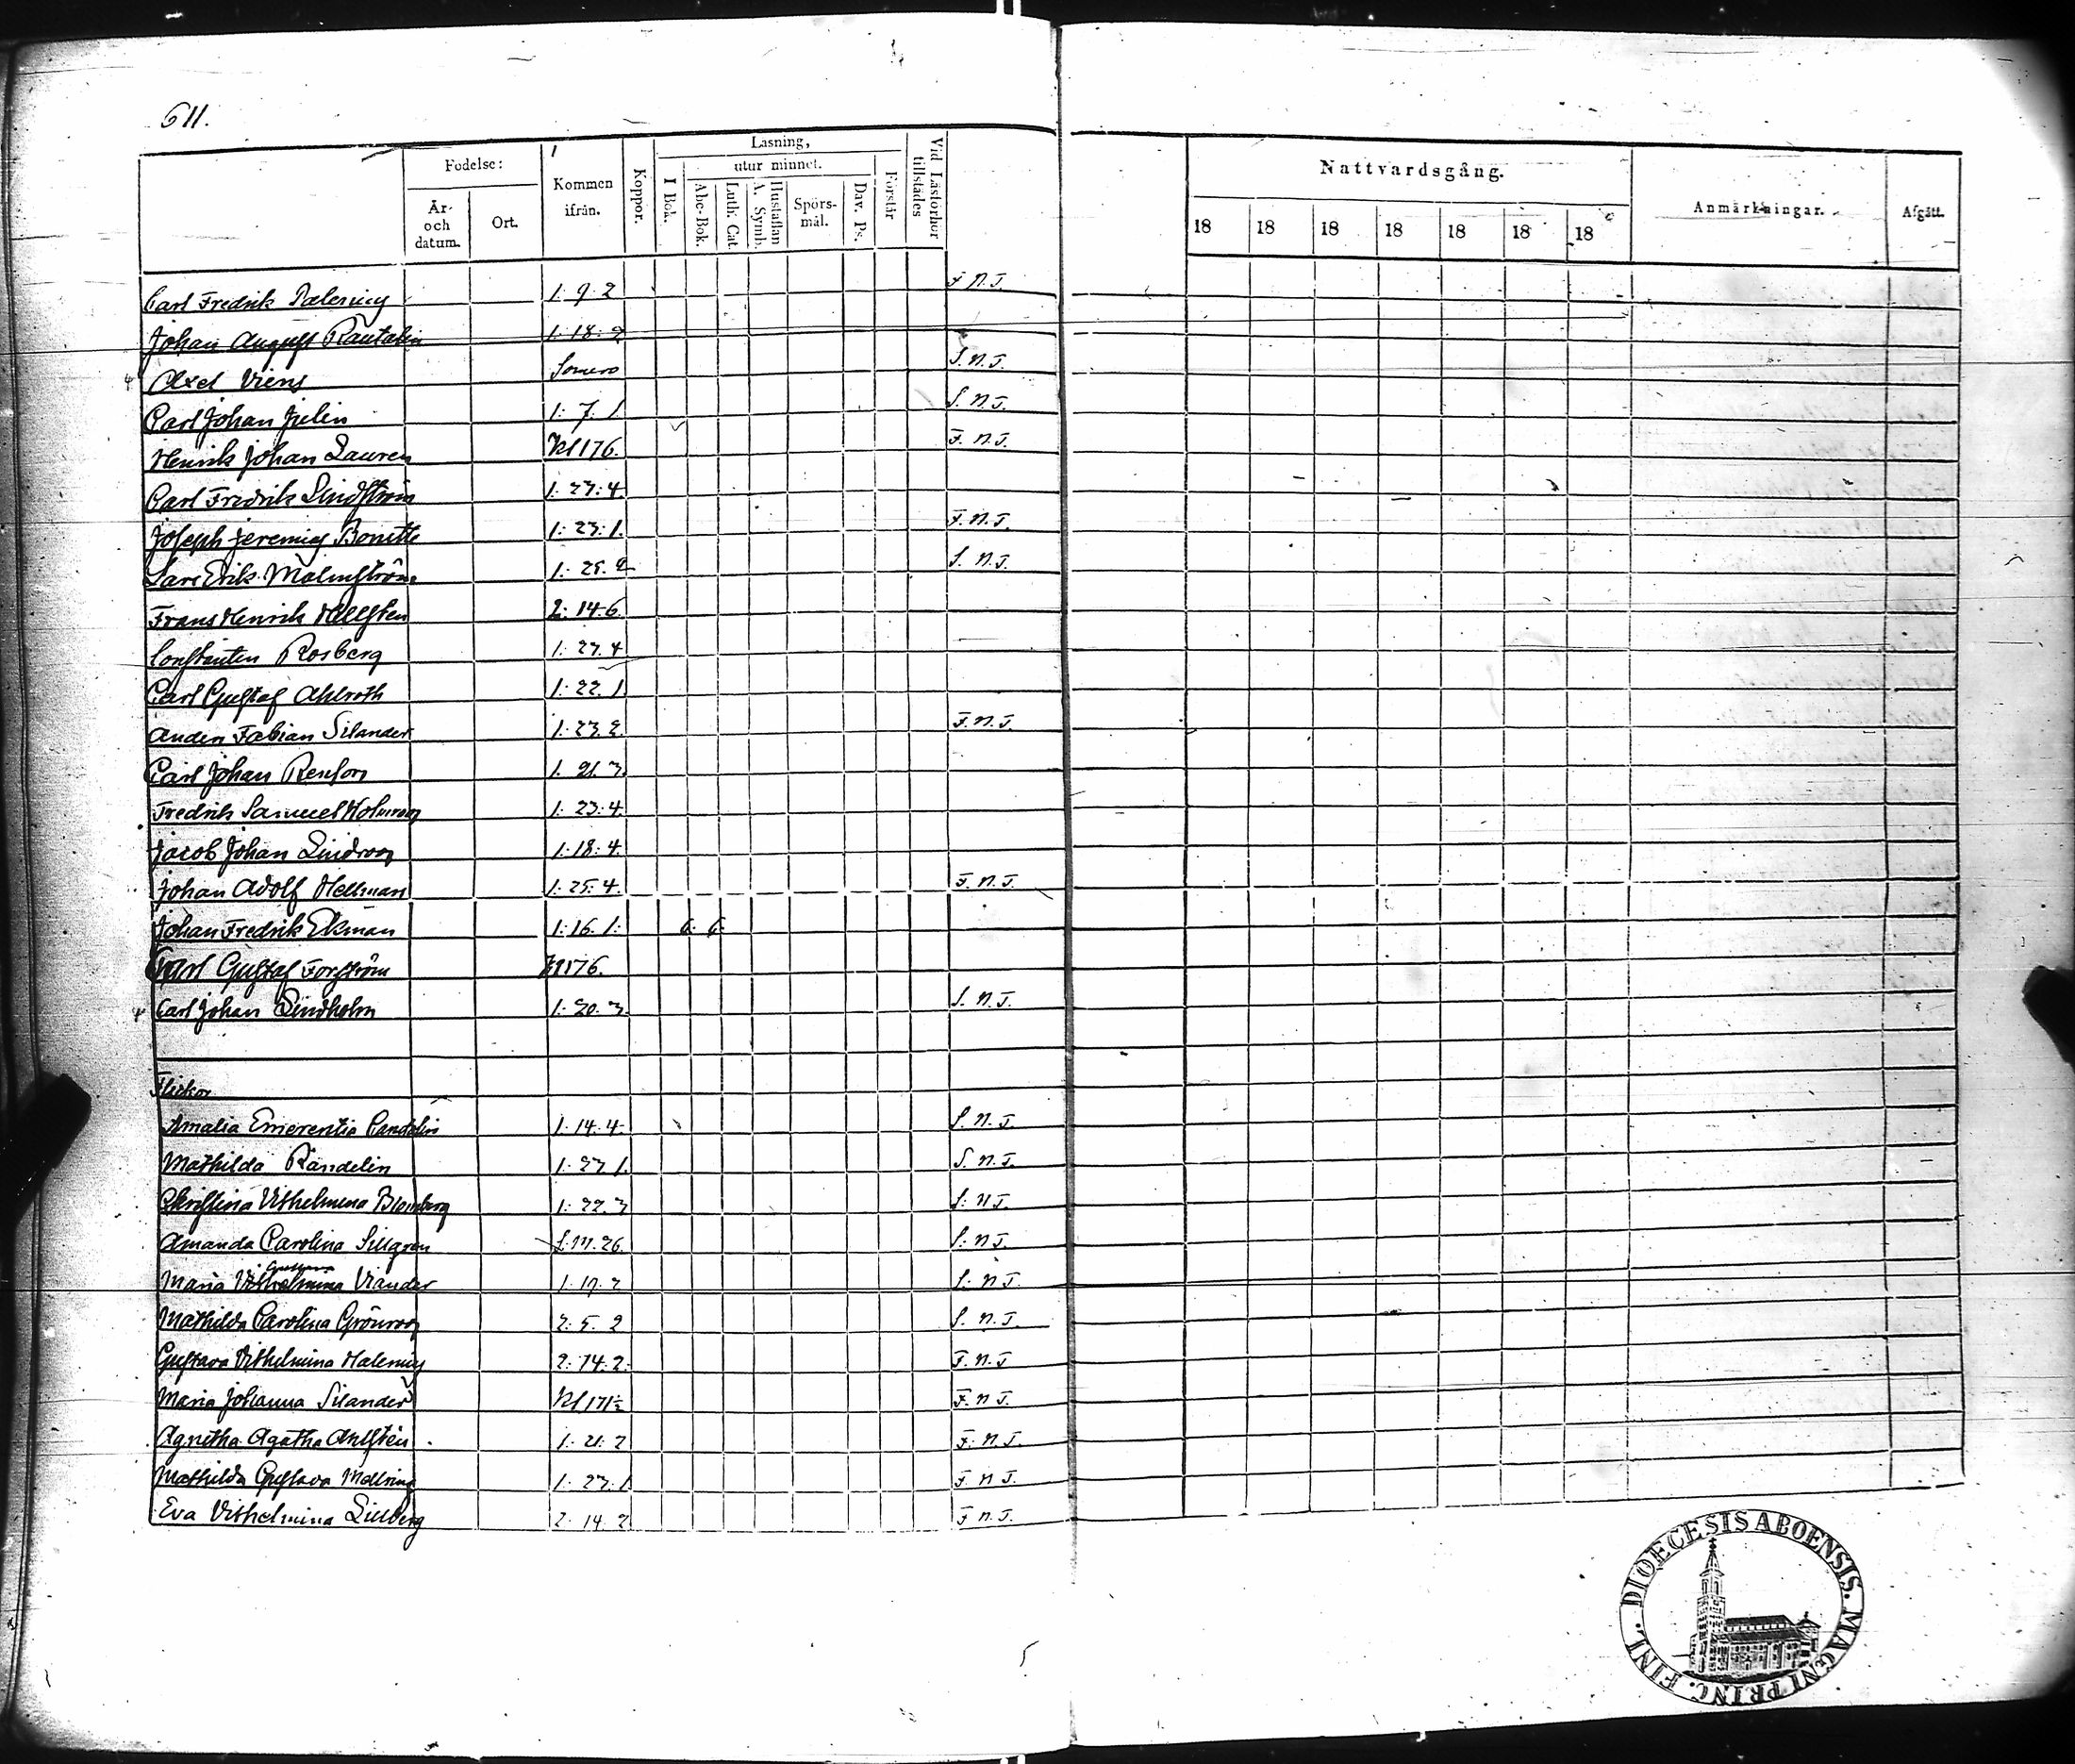 611.
Födelse:
År- och datum.
Ort.
Kommen ifrån.
Koppor.
Läsning,
utur minnet.
I Bok.
Abc-Bok.
Luth. Cat.
Hustaflan A. Symb.
Spörs-mål.
Dav. Ps.
Förstår
Vid Läsförhör tillstädes
Nattvardsgång.
18 18 18 18 18 18 18
Anmärkningar.
Afgått.
Carl Fredrik 1. 9. 2 F N. J.
Johan August Rautalin 1. 18. 2
Axel Viens Somero S. N. J.
Carl Johan Julin 1. 7. 1 S. N. J.
Henrik Johan Lauren Kl 176. F. N. J.
Carl Fredrik Lindström 1. 27. 4.
Joseph Jeremias 1. 23. 1. F. N. J.
Lars Erik Malmström 1. 25. 2 S. N. J.
Frans Henrik Hellsten 2. 14. 6.
Constantin Rosberg 1. 27. 4
Carl Gustaf Ahlroth 1. 22. 1
Anders Fabian Silander 1. 23. 2. F. N. J.
Carl Johan Renfors 1. 21. 3.
Fredrik Samuel Holmroos 1. 23. 4.
Jacob Johan Lindroos 1. 18. 4.
Johan Adolf Hellman 1. 25. 4. F. N. J.
Johan Fredrik Ekman 1. 16. 1. 6. 6.
Carl Gustaf Forsström 176.
Carl Johan Lindholm 1. 20. 3. S. N. J.
Flickor
Amalia Emerentia Candelin 1. 14. 4. S. N. J.
Mathilda Randelin 1. 27. 1. S. N. J.
Christina Vilhelmina Blomberg 1. 22. 3 S. N J.
Amanda Carolina Sillgren 26. S. N J.
Gustava
Maria Vilhelmina Viander 1. 19. 2 S. N J.
Mathilda Carolina Grönroos 2. 5. 2 S. N. J.
Gustava Vilhelmina 2. 14. 2. F. N. J
Maria Johanna Silander Kl 171½ F. N J.
Agnetha Agatha Ahlsten 1. 21. 2 F. N J.
Mathilda Gustava Mellring 1. 27. 1 F N J.
Eva Vilhelmina Lillberg 2. 14. 2 F N. J.
DIOECESIS ABOENSIS. MAGNI PRINC. FINL.